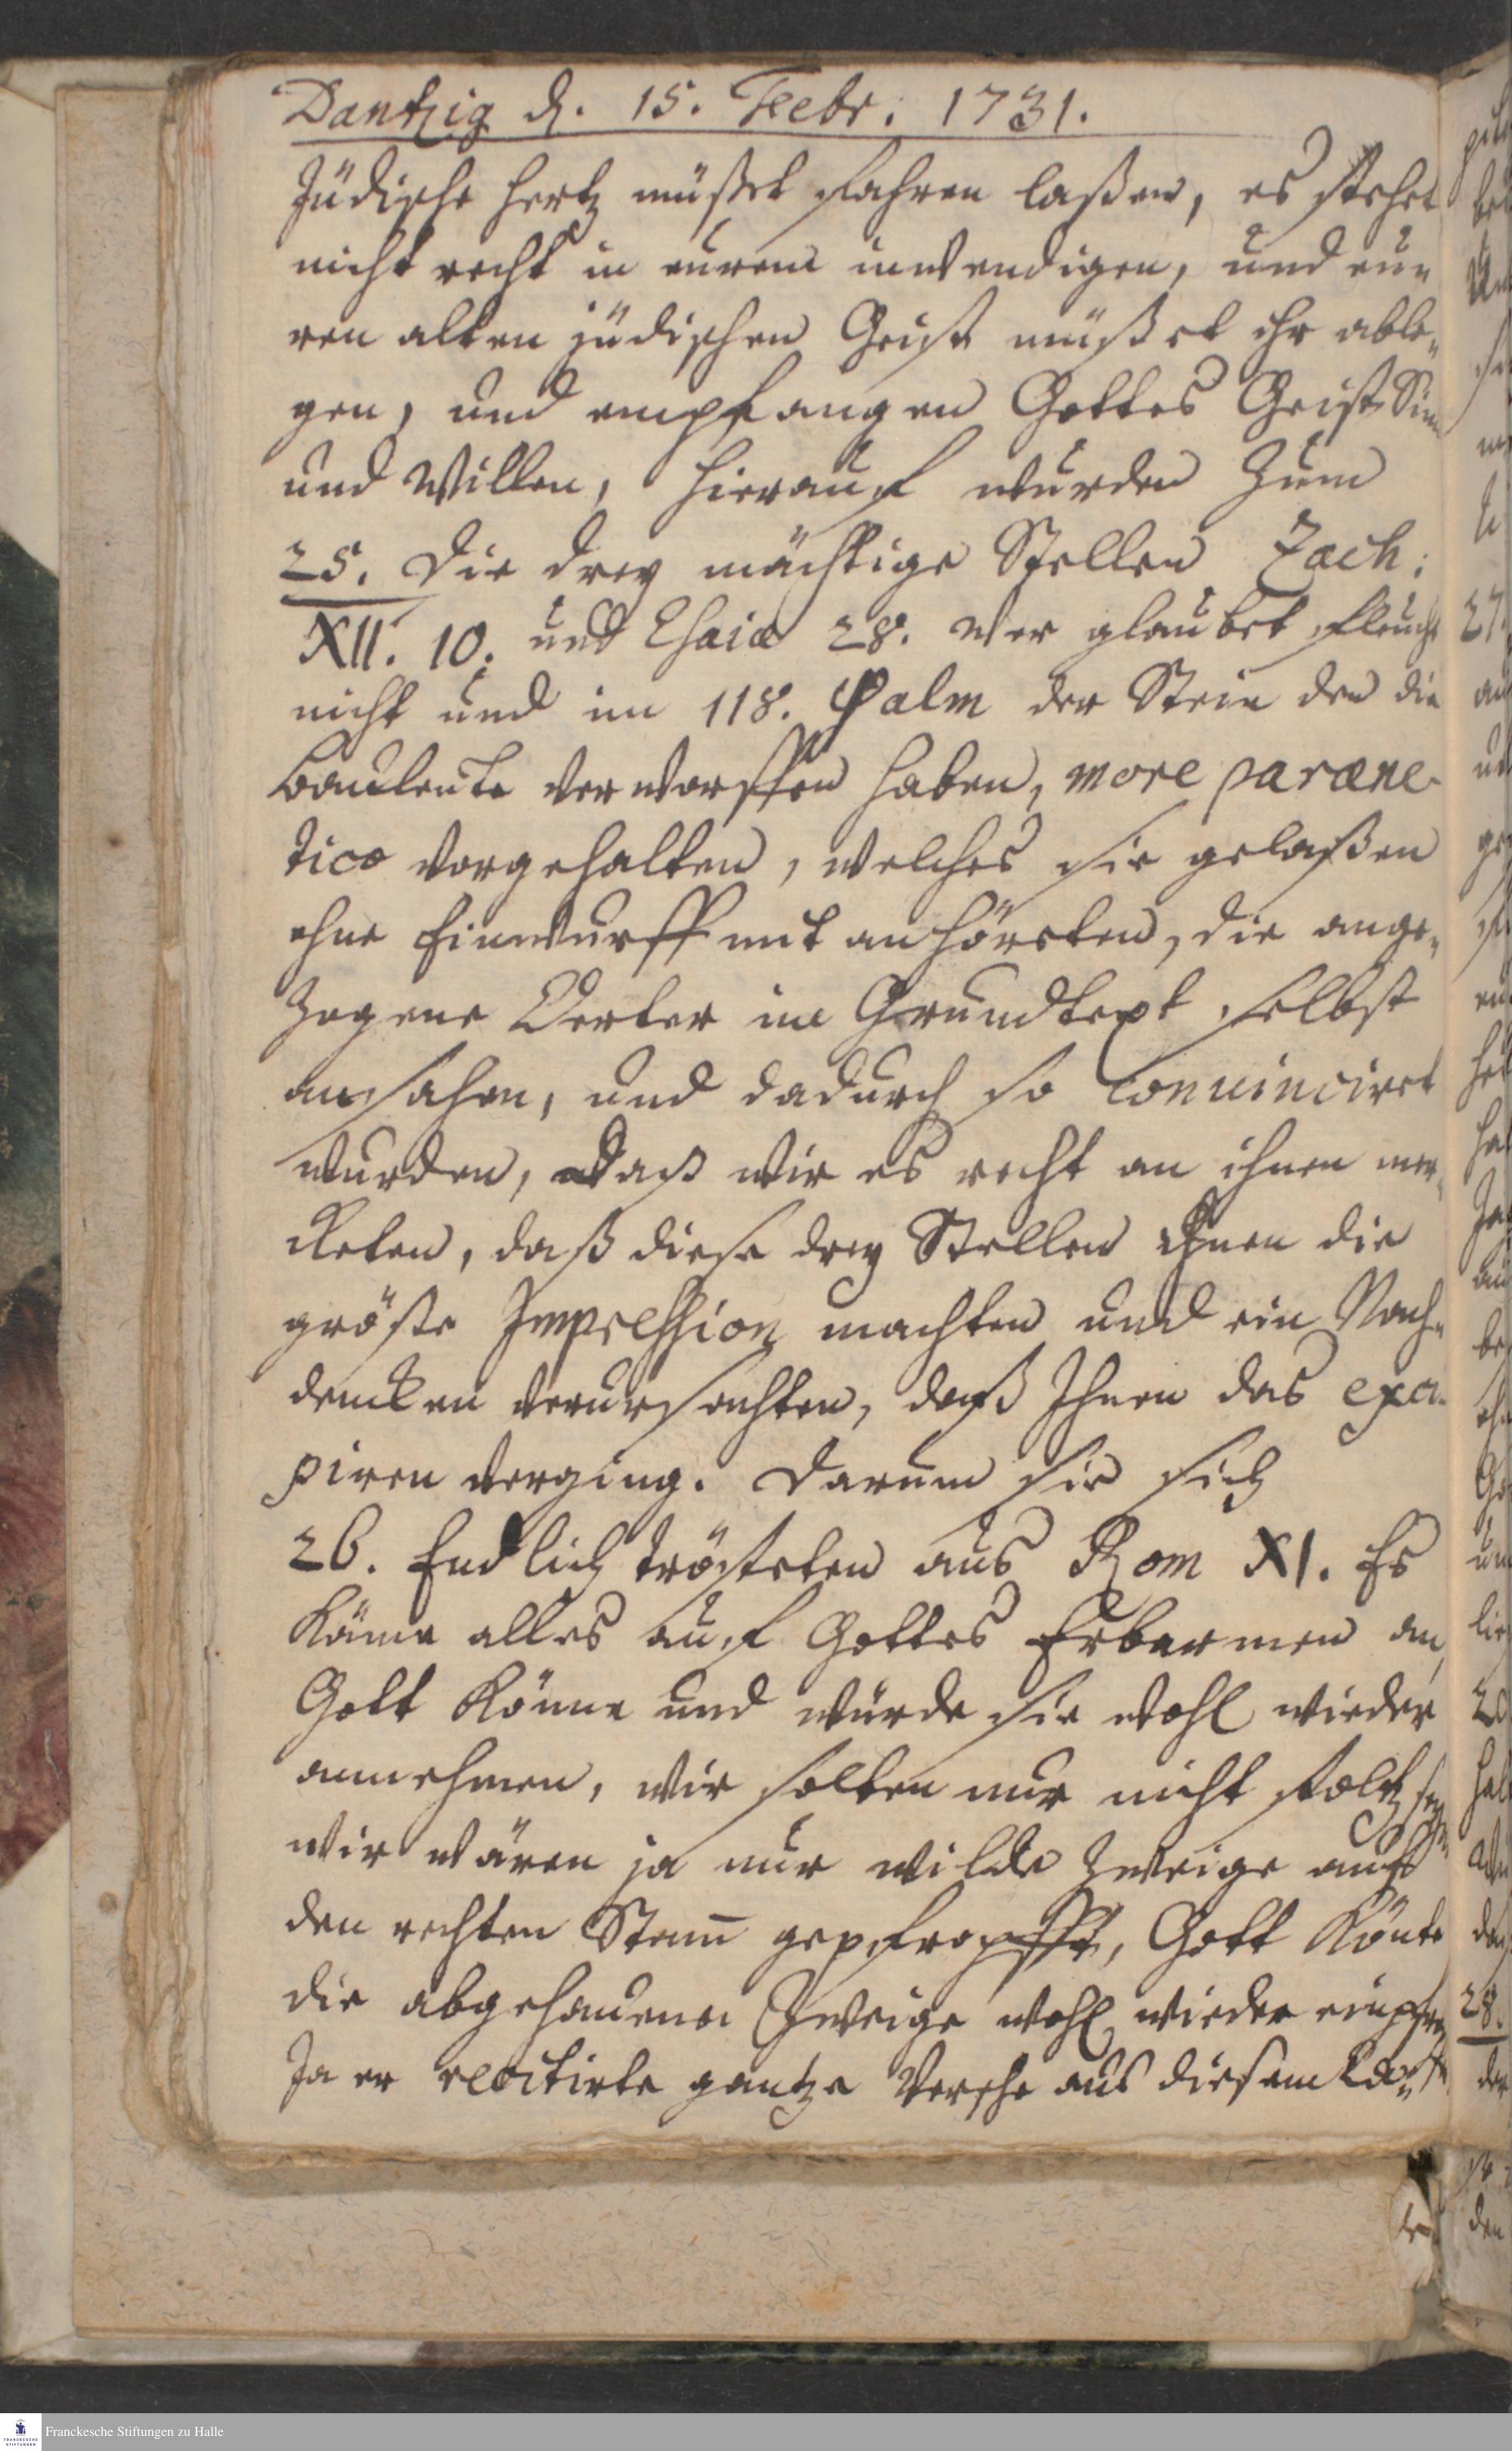 Dantzig d. 15. Febr. 1731.
Jüdische Hertz müßet fahren laßen, es stehet
nicht recht in eurem inwendigen, und eu„
ren alten jüdischen Geist müßet ihr able„
gen, und empfangen Gottes Geist Sinn
und Willen, hierauf wurden zum
25. Die drey mächtige Stellen Zach:
XII. 10. und Esaiæ 28. wer glaubet fleucht
nicht und im 118. Psalm der Stein den die
Bauleute verworffen haben, more paræne-
tico vorgehalten, welches sie gelaßen
ohne Einwurff mit anhöreten, die ange„
zogene Oerter im Grundtext selbst
ansahen, und dadurch so convinciret
wurden, daß wir es recht an ihnen mer„
cketen, daß diese drey Stellen ihnen die
größte Impression machten und ein Nach„
dencken verursachten, daß Ihnen das exa-
piren verging. Darum sie sich
26. Endlich trösteten aus Rom XI. Es
käme alles auf Gottes Erbarmen an,
Gott könne und würde sie wohl wieder
annehmen, wir solten nur nicht stoltz seyn
wir wären ja nur wilde Zweige auf
den rechten Stam̄ gepfropfft, Gott könte
die abgehauene Zweige wohl wieder einpfro„
Ja er recitirte gantze Versche aus diesem
27.
28.
Franckesche Stiftungen zu Halle